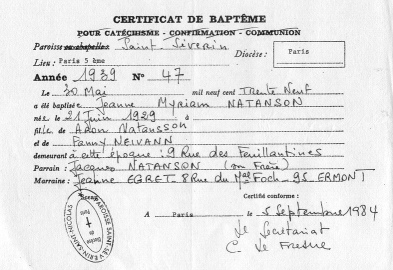 CERTIFICAT DE BAPTÊME
POUR CATÉCHISME - CONFIRMATION - COMMUNION
Paroisse ou chapelle : Saint. Séverin
Diocèse : Paris
Lieu : Paris 5 ème
Année 1939 N° 47
Le 30 Mai mil neuf cent Trente Neuf
a été baptisé Jeanne Myriam NATANSON
né le 21 Juin 1929 à
fille de Adon Natansson
et de Fanny NEIVANN
demeurant à cette époque : 9 Rue des Feuillantines
Parrain : Jacques NATANSON (son Frère)
Marraine : Jeanne EGRET 8 Rue du Mal Foch - 95 ERMONT
Certifié conforme :
A Paris le 5 Septembre 1984
Le Secrétariat
C. Le Fresne
PAROISSE SAINT-SÉVERIN-SAINT-NICOLAS
Diocèse de Paris